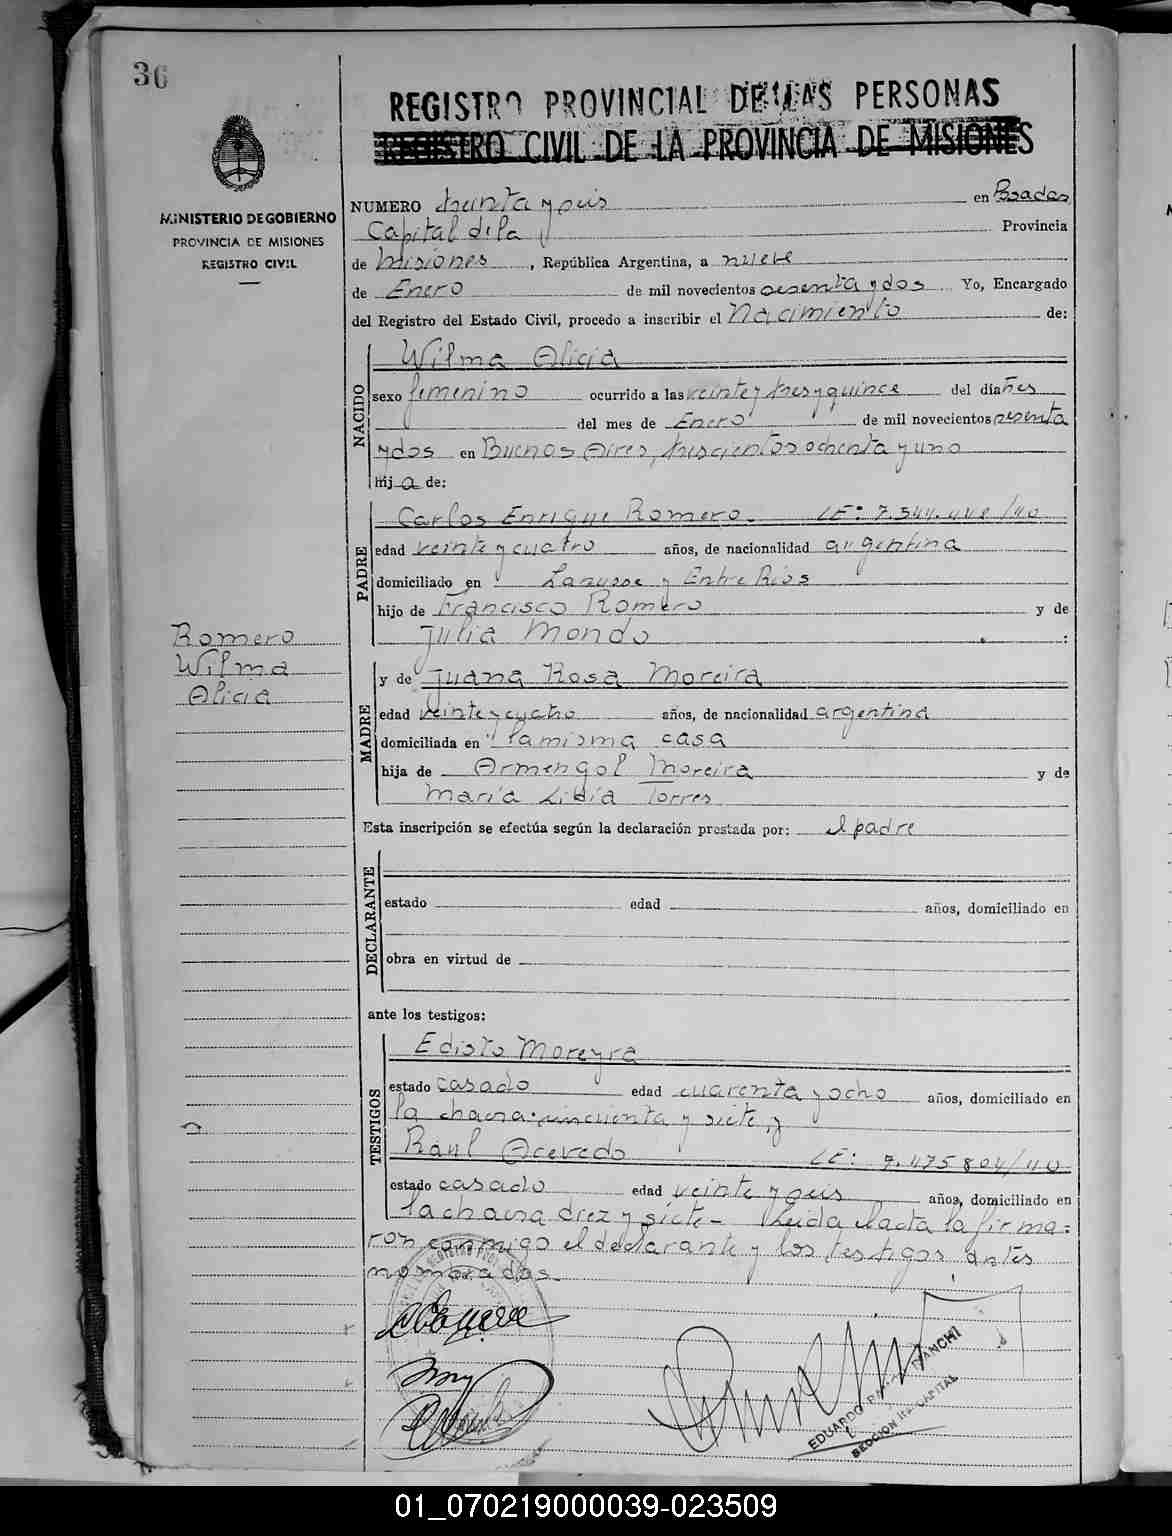 36
REGISTRO PROVINCIAL DE LAS PERSONAS
REGISTRO CIVIL DE LA PROVINCIA DE MISIONES
MINISTERIO DE GOBIERNO
PROVINCIA DE MISIONES
REGISTRO CIVIL
NUMERO treinta y seis en Posadas
Capital de la Provincia
de Misiones, República Argentina, a nueve
de Enero de mil novecientos sesenta y dos Yo, Encargado
del Registro del Estado Civil, procedo a inscribir el Nacimiento de:
NACIDO
Wilma Alicia
sexo femenino ocurrido a las veinte y tres y quince del día tres
del mes de Enero de mil novecientos sesenta
y dos en Buenos Aires, trescientos ochenta y uno
hij a de:
PADRE
Carlos Enrique Romero. LE: 7.544.448/40
edad veinte y cuatro años, de nacionalidad argentina
domiciliado en Lanusse y Entre Rios
hijo de Francisco Romero y de
Julia Mondo :
Romero
Wilma
Alicia
MADRE
y de Juana Rosa Moreira
edad veinte y cuatro años, de nacionalidad argentina
domiciliada en la misma casa
hija de Armengol Moreira y de
María Lidia Torres
Esta inscripción se efectúa según la declaración prestada por: el padre
DECLARANTE
estado edad años, domiciliado en
obra en virtud de
ante los testigos:
TESTIGOS
Edisto Moreyra
estado casado edad cuarenta y ocho años, domiciliado en
la chacra cincuenta y siete, y
Raul Acevedo LE: 7.475804/40
estado casado edad veinte y seis años, domiciliado en
la chacra diez y siete - Leida el acta la firma:
ron conmigo el declarante y los testigos antes
nombrados.
EDUARDO BIANCHI
SECCION CAPITAL
01_070219000039-023509